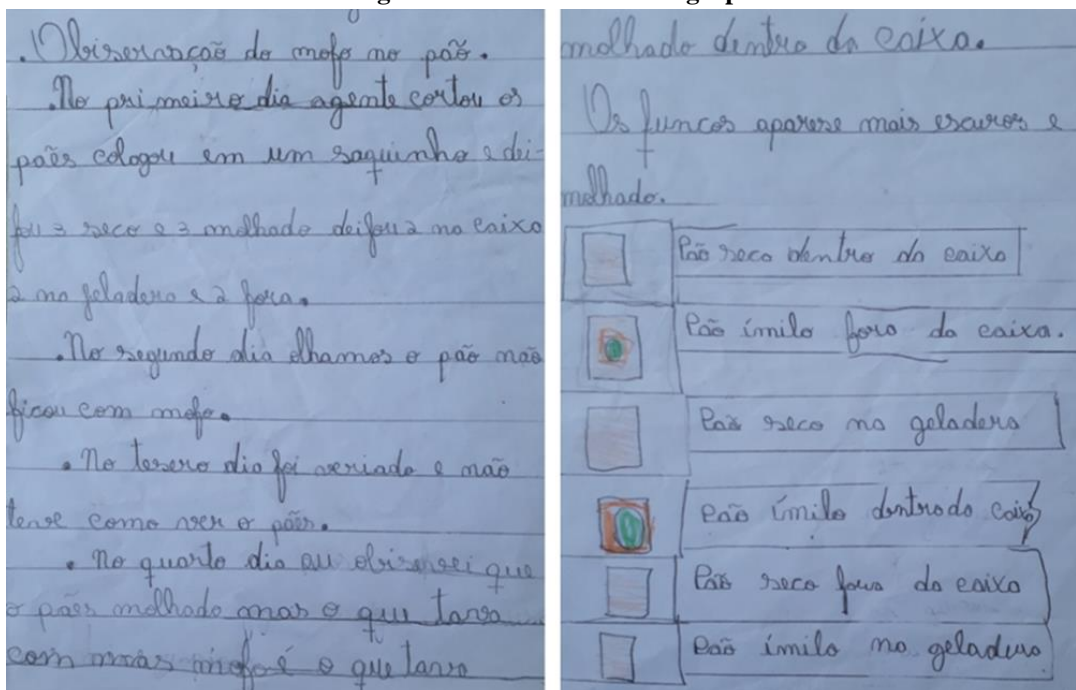 . Obisernaçaõ do mofo no paõ.
. No primeiro dia agente cortou os
paẽs cologou em um saquinho e dei-
fou 3 seco e 3 molhado deifou 2 na caixa
2 na geladera e 2 fora.
. No segundo dia olhamos o pão não
ficou com mofo.
. No tesero dia foi veriado e não
teve como ver o pães.
. No quarto dia eu obisersei que
o pães molhado mas o que tava
com mas mofo é o que tava
molhado dentro da caixa.
Os funcos aparese mais escuros e
molhado.
Pão seco dentro da caixa
Pão ímilo fora da caixa.
Pão seco na geladera
Pão ímilo dentro da caixa
Pão seco fora da caixa
Pão ímilo na geladera